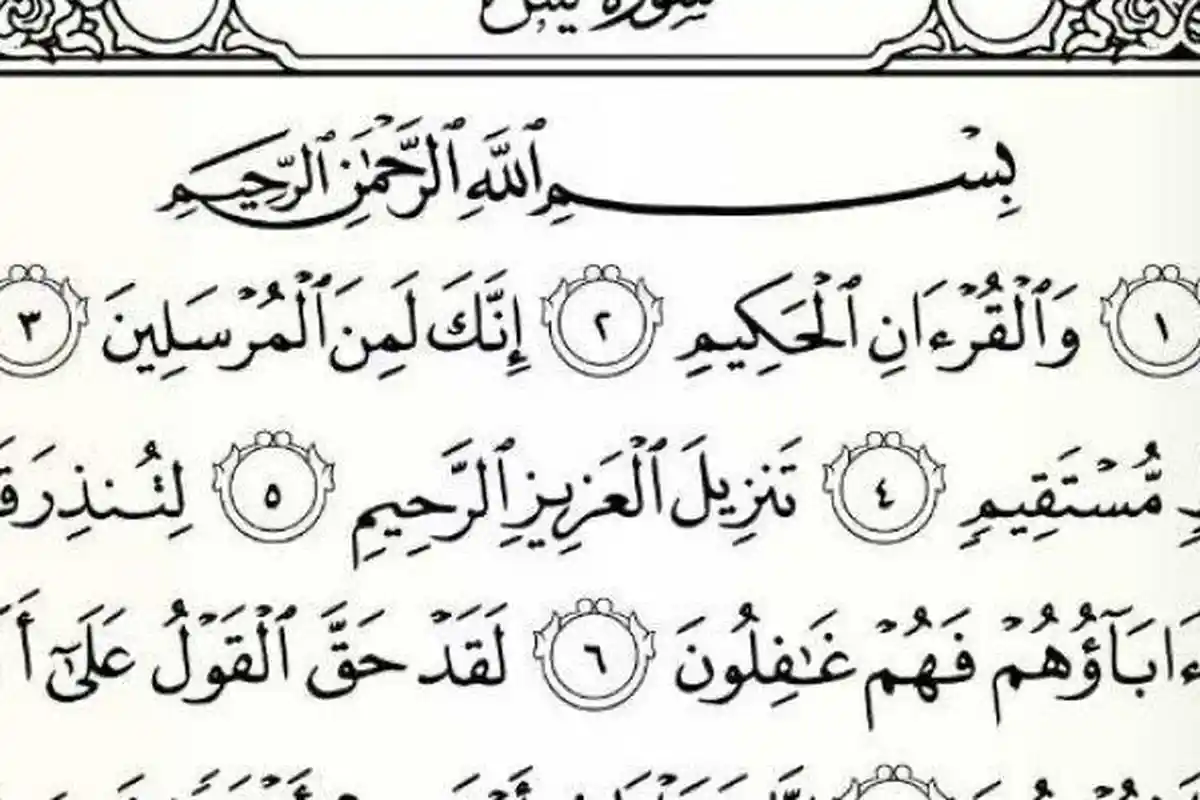 سورة يس
بِسْمِ ٱللَّهِ ٱلرَّحْمَٰنِ ٱلرَّحِيمِ
١ وَٱلْقُرْءَانِ ٱلْحَكِيمِ ٢ إِنَّكَ لَمِنَ ٱلْمُرْسَلِينَ ٣
مُّسْتَقِيمٍ ٤ تَنزِيلَ ٱلْعَزِيزِ ٱلرَّحِيمِ ٥ لِتُنذِرَ
ءَابَآؤُهُمْ فَهُمْ غَٰفِلُونَ ٦ لَقَدْ حَقَّ ٱلْقَوْلُ عَلَىٰٓ